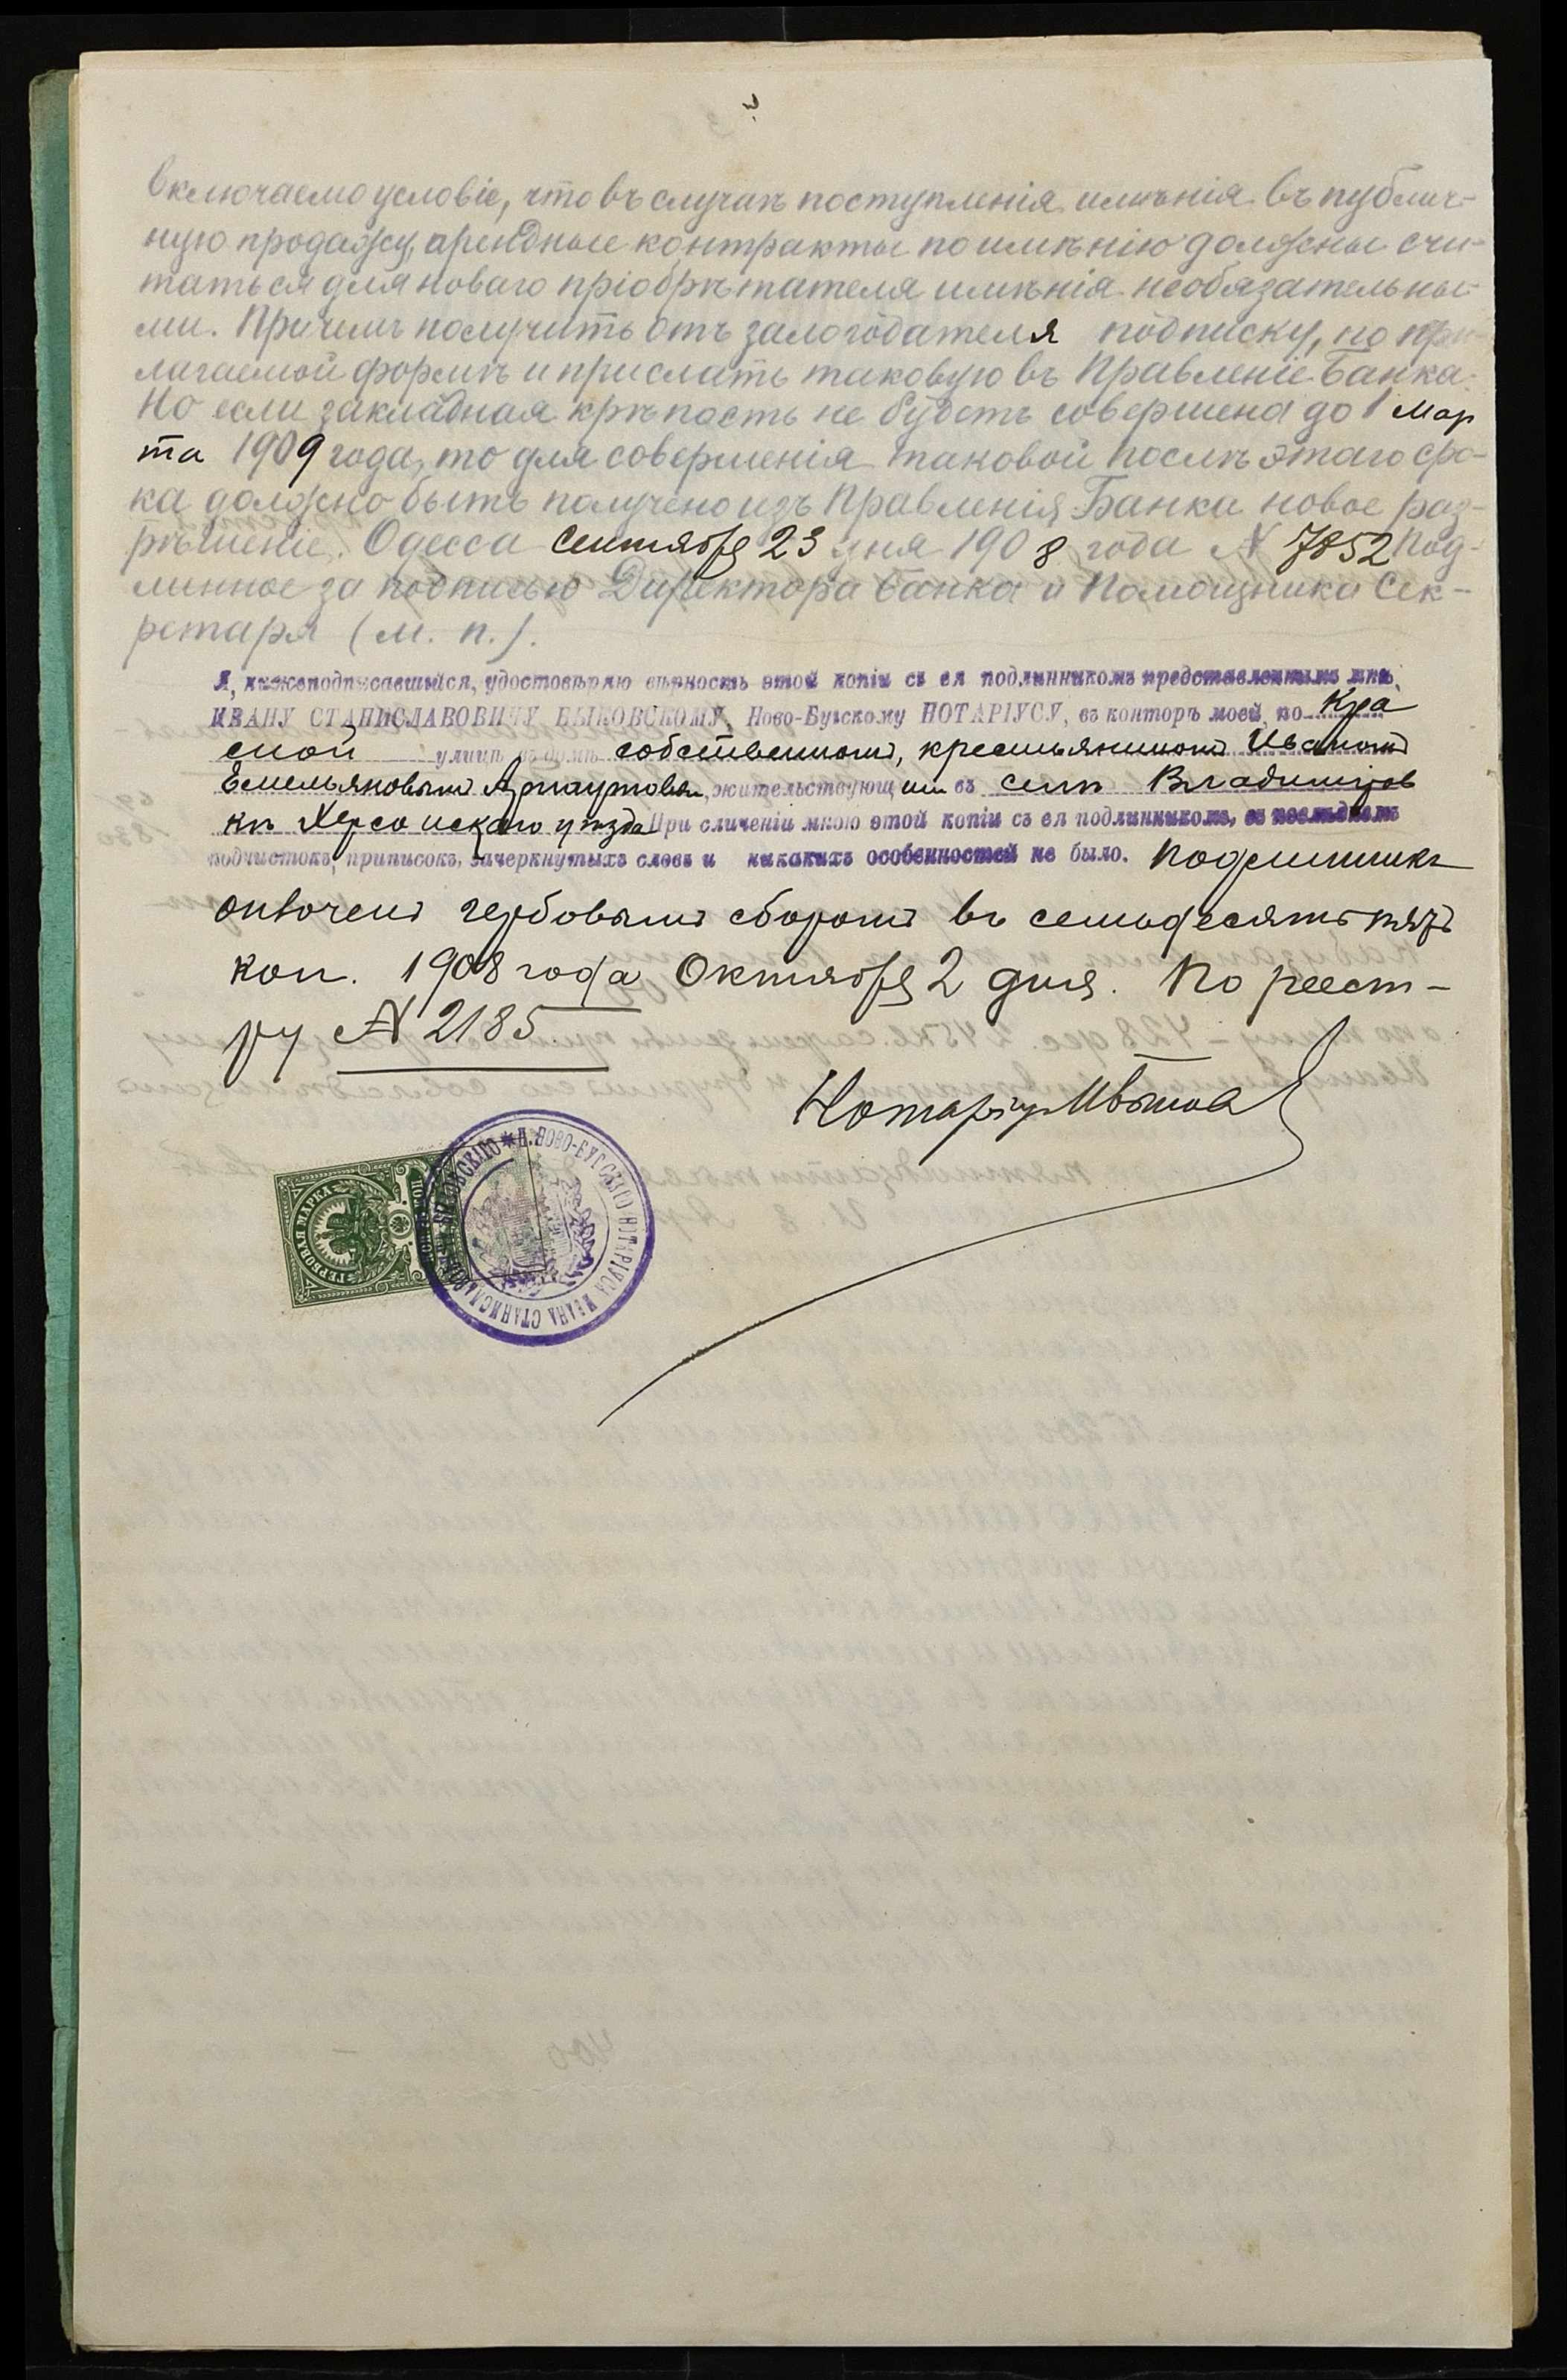 3
включаемо условіе, что въ случаѣ поступленія имѣнія въ публич-
ную продажу, арендные контракты по имѣнію должны счи-
таться для новаго пріобрѣтателя имѣнія необязательны-
ми. Причемъ получить отъ залогодателя подписку, по при-
лагаемой формѣ и прислать таковую въ Правленіе Банка.
Но если закладная крѣпость не будетъ совершена до 1 Мар
та 1909 года, то для совершенія таковой послѣ этого сро-
ка должно быть получено изъ Правленія Банка новое раз-
рѣшеніе. Одесса Сентября 23 дня 1908 года № 7852 Под-
линное за подписью Директора Банка и Помощника Сек-
ретаря (м. п.).
Я, нижеподписавшійся, удостовѣряю вѣрность этой копіи съ ея подлинникомъ представленнымъ мнѣ,
ИВАНУ СТАНИСЛАВОВИЧУ БЫКОВСКОМУ, Ново-Бугскому НОТАРІУСУ, въ конторѣ моей, по Кра
сной улицѣ въ домѣ собственномъ, крестьяниномъ Иваномъ
Емельяновымъ Арнаутовым, жительствующимъ въ селѣ Владиміров
кѣ Херсонскаго уѣзда При сличеніи мною этой копіи съ ея подлинникомъ, въ послѣднемъ
подчистокъ, приписокъ, зачеркнутыхъ словъ и никакихъ особенностей не было. Подлинникъ
оплоченъ гербовымъ сборомъ въ семьдесятъ пять
коп. 1908 года Октября 2 дня. По реест-
ру № 2185
Нотаріусъ
ГЕРБОВАЯ МАРКА
Н. НОВО-БУГСКАГО НОТАРІУСА ИВАНА СТАНИСЛАВОВИЧА БЫКОВСКАГО